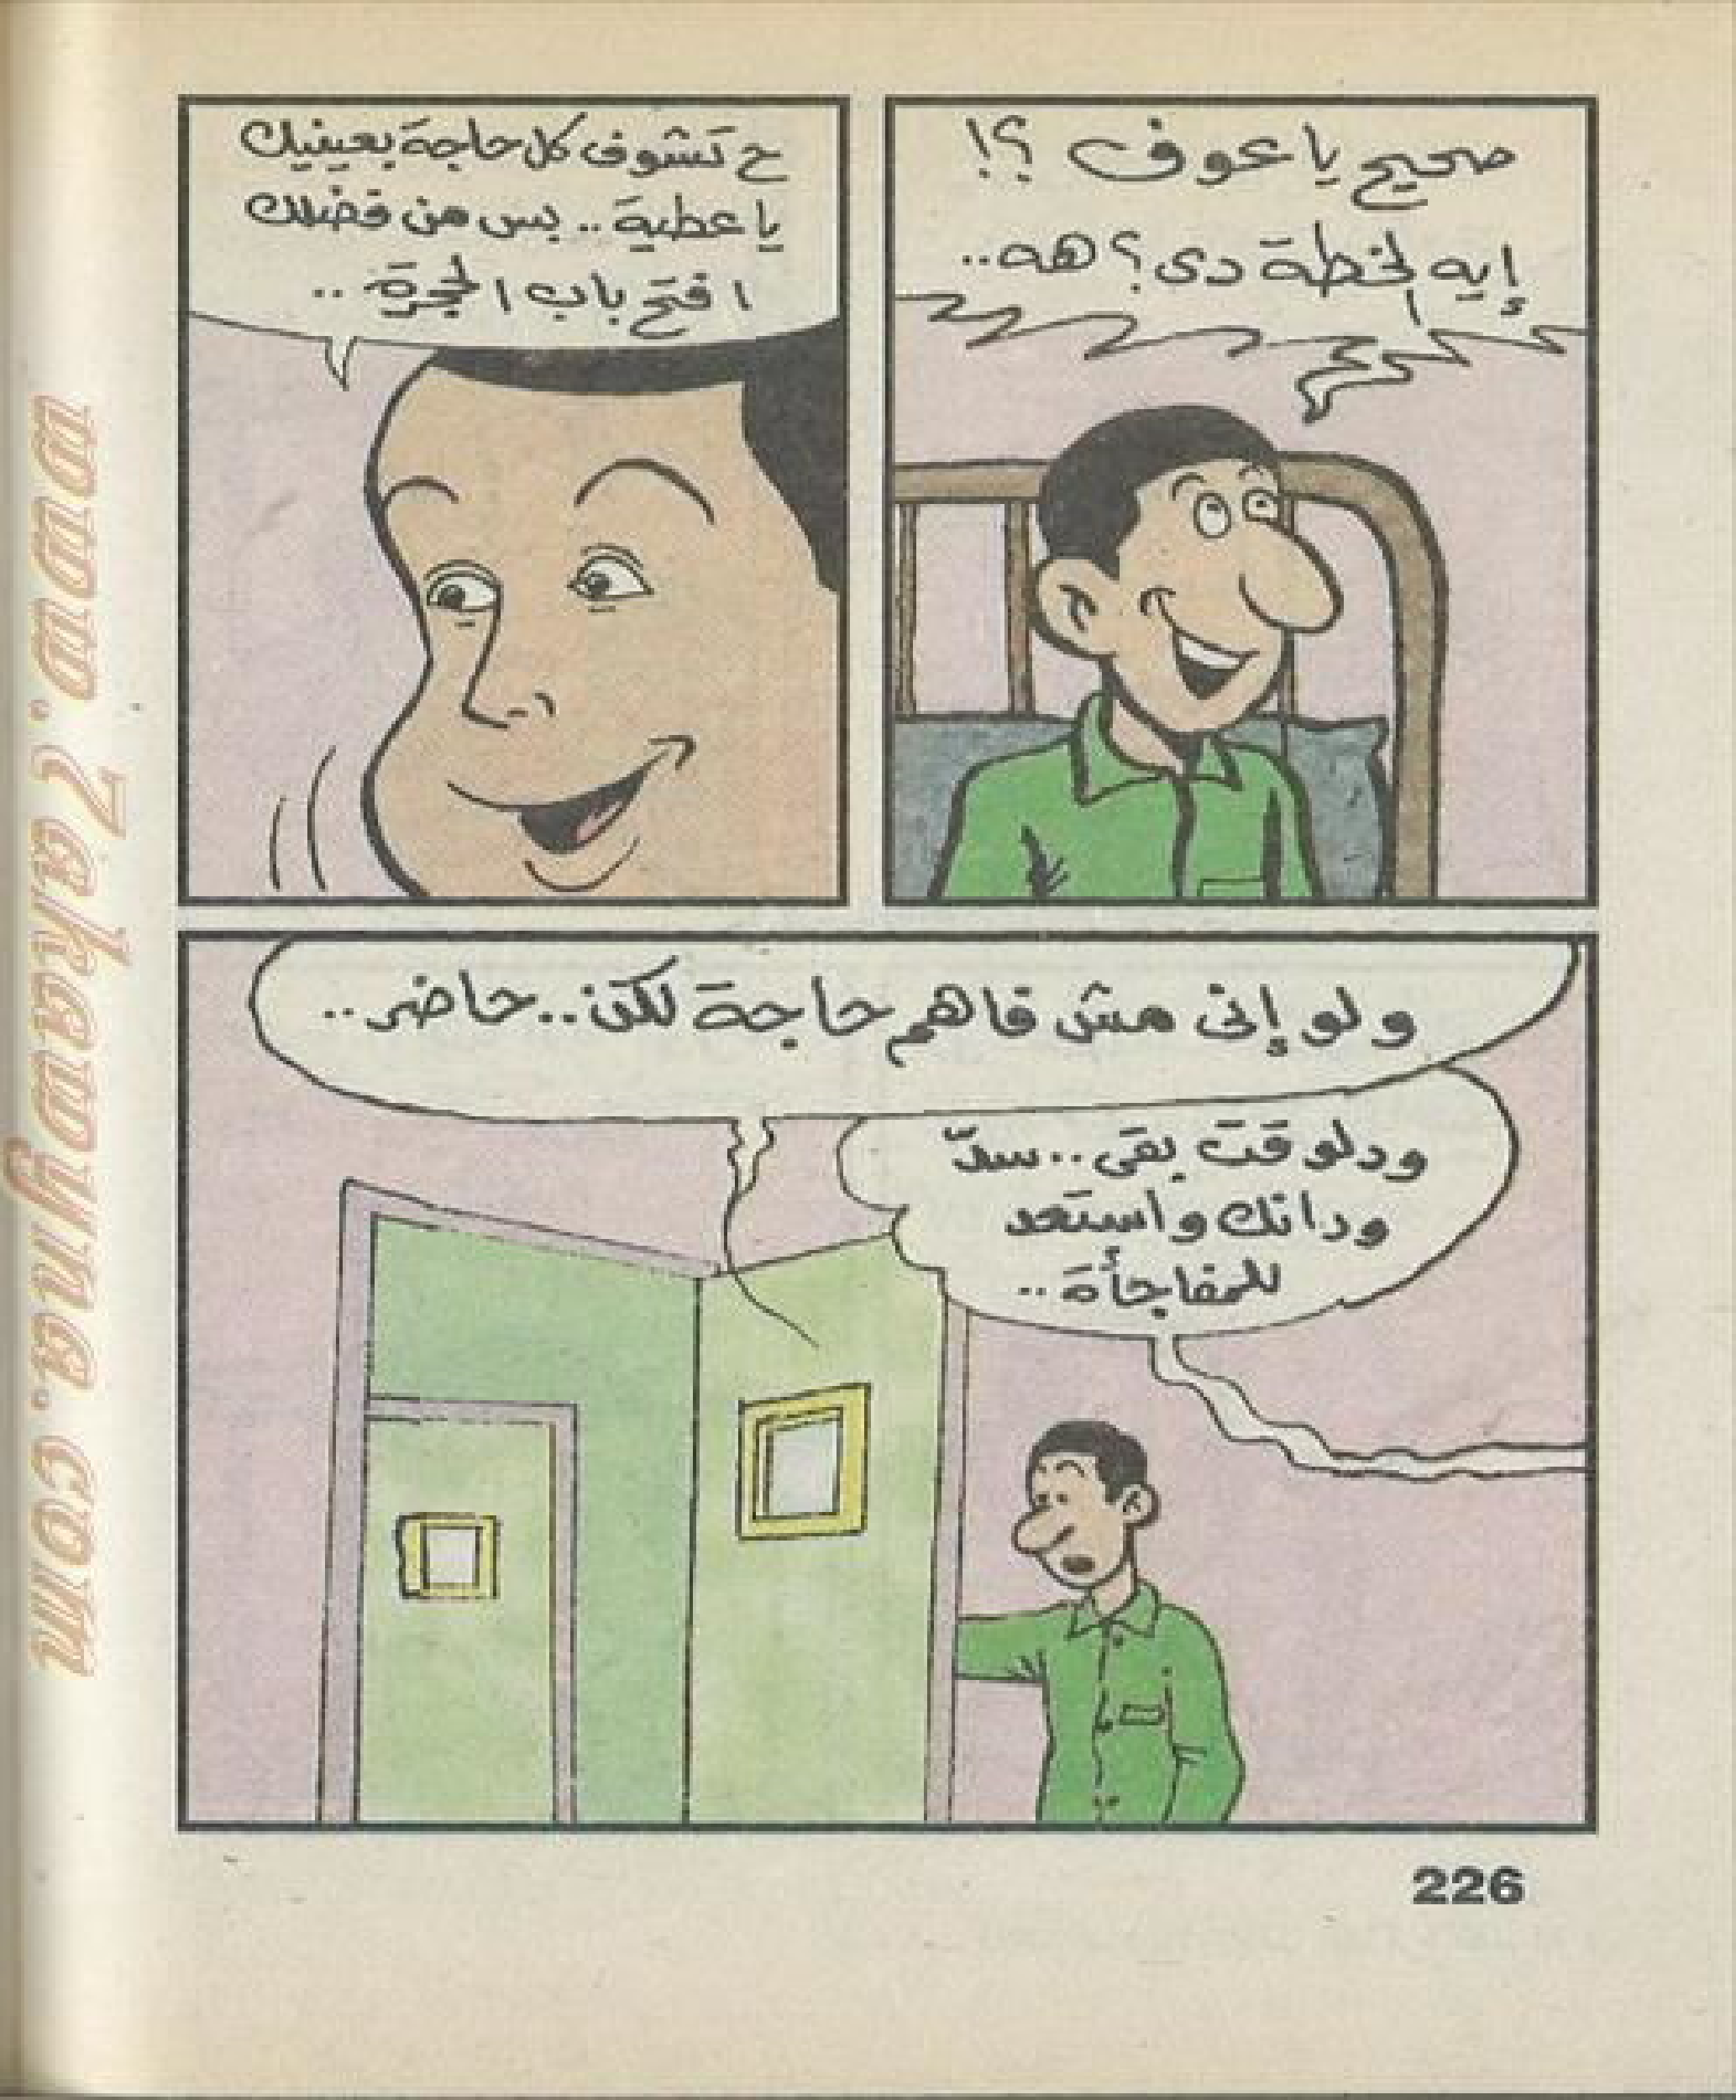 صحيح يا عوف ؟!
إيه الخطة دى ؟ هه..
ح تشوف كل حاجة بعينيك
يا عطية .. بس من فضلك
افتح باب الحجرة ..
ولو إنى مش فاهم حاجة لكن.. حاضر..
ودلوقت بقى .. سدّ
ودانك واستعد
للمفاجأة ..
226
www.7akawyna.com